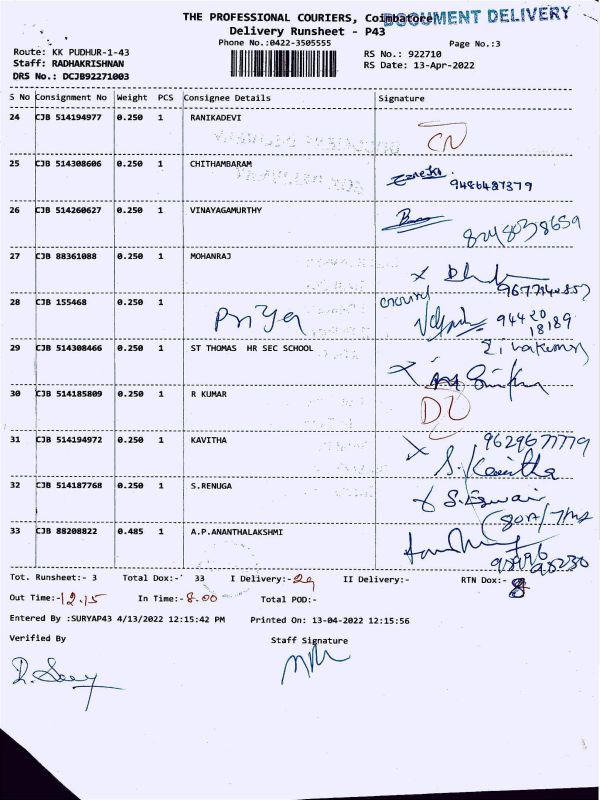 THE PROFESSIONAL COURIERS, Coimbatore
DOCUMENT DELIVERY
Delivery Runsheet - P43
Phone No.:0422-3505555
Page No.:3
Route: KK PUDHUR-1-43
RS No.: 922710
Staff: RADHAKRISHNAN
RS Date: 13-Apr-2022
DRS No.: DCJB92271003
S No Consignment No Weight PCS Consignee Details Signature
24 CJB 514194977 0.250 1 RANIKADEVI
CN
25 CJB 514308606 0.250 1 CHITHAMBARAM
9486487379
26 CJB 514260627 0.250 1 VINAYAGAMURTHY
8248038659
27 CJB 88361088 0.250 1 MOHANRAJ
28 CJB 155468 0.250 1
Priya
94420
18189
29 CJB 514308466 0.250 1 ST THOMAS HR SEC SCHOOL
30 CJB 514185809 0.250 1 R KUMAR
DL
31 CJB 514194972 0.250 1 KAVITHA
9629677779
S. Kavitha
32 CJB 514187768 0.250 1 S.RENUGA
33 CJB 88208822 0.485 1 A.P.ANANTHALAKSHMI
Tot. Runsheet:- 3 Total Dox:- 33 I Delivery:- 29 II Delivery:- RTN Dox:-
Out Time:- 12.15 In Time:- 8.00 Total POD:-
Entered By :SURYAP43 4/13/2022 12:15:42 PM Printed On: 13-04-2022 12:15:56
Verified By Staff Signature